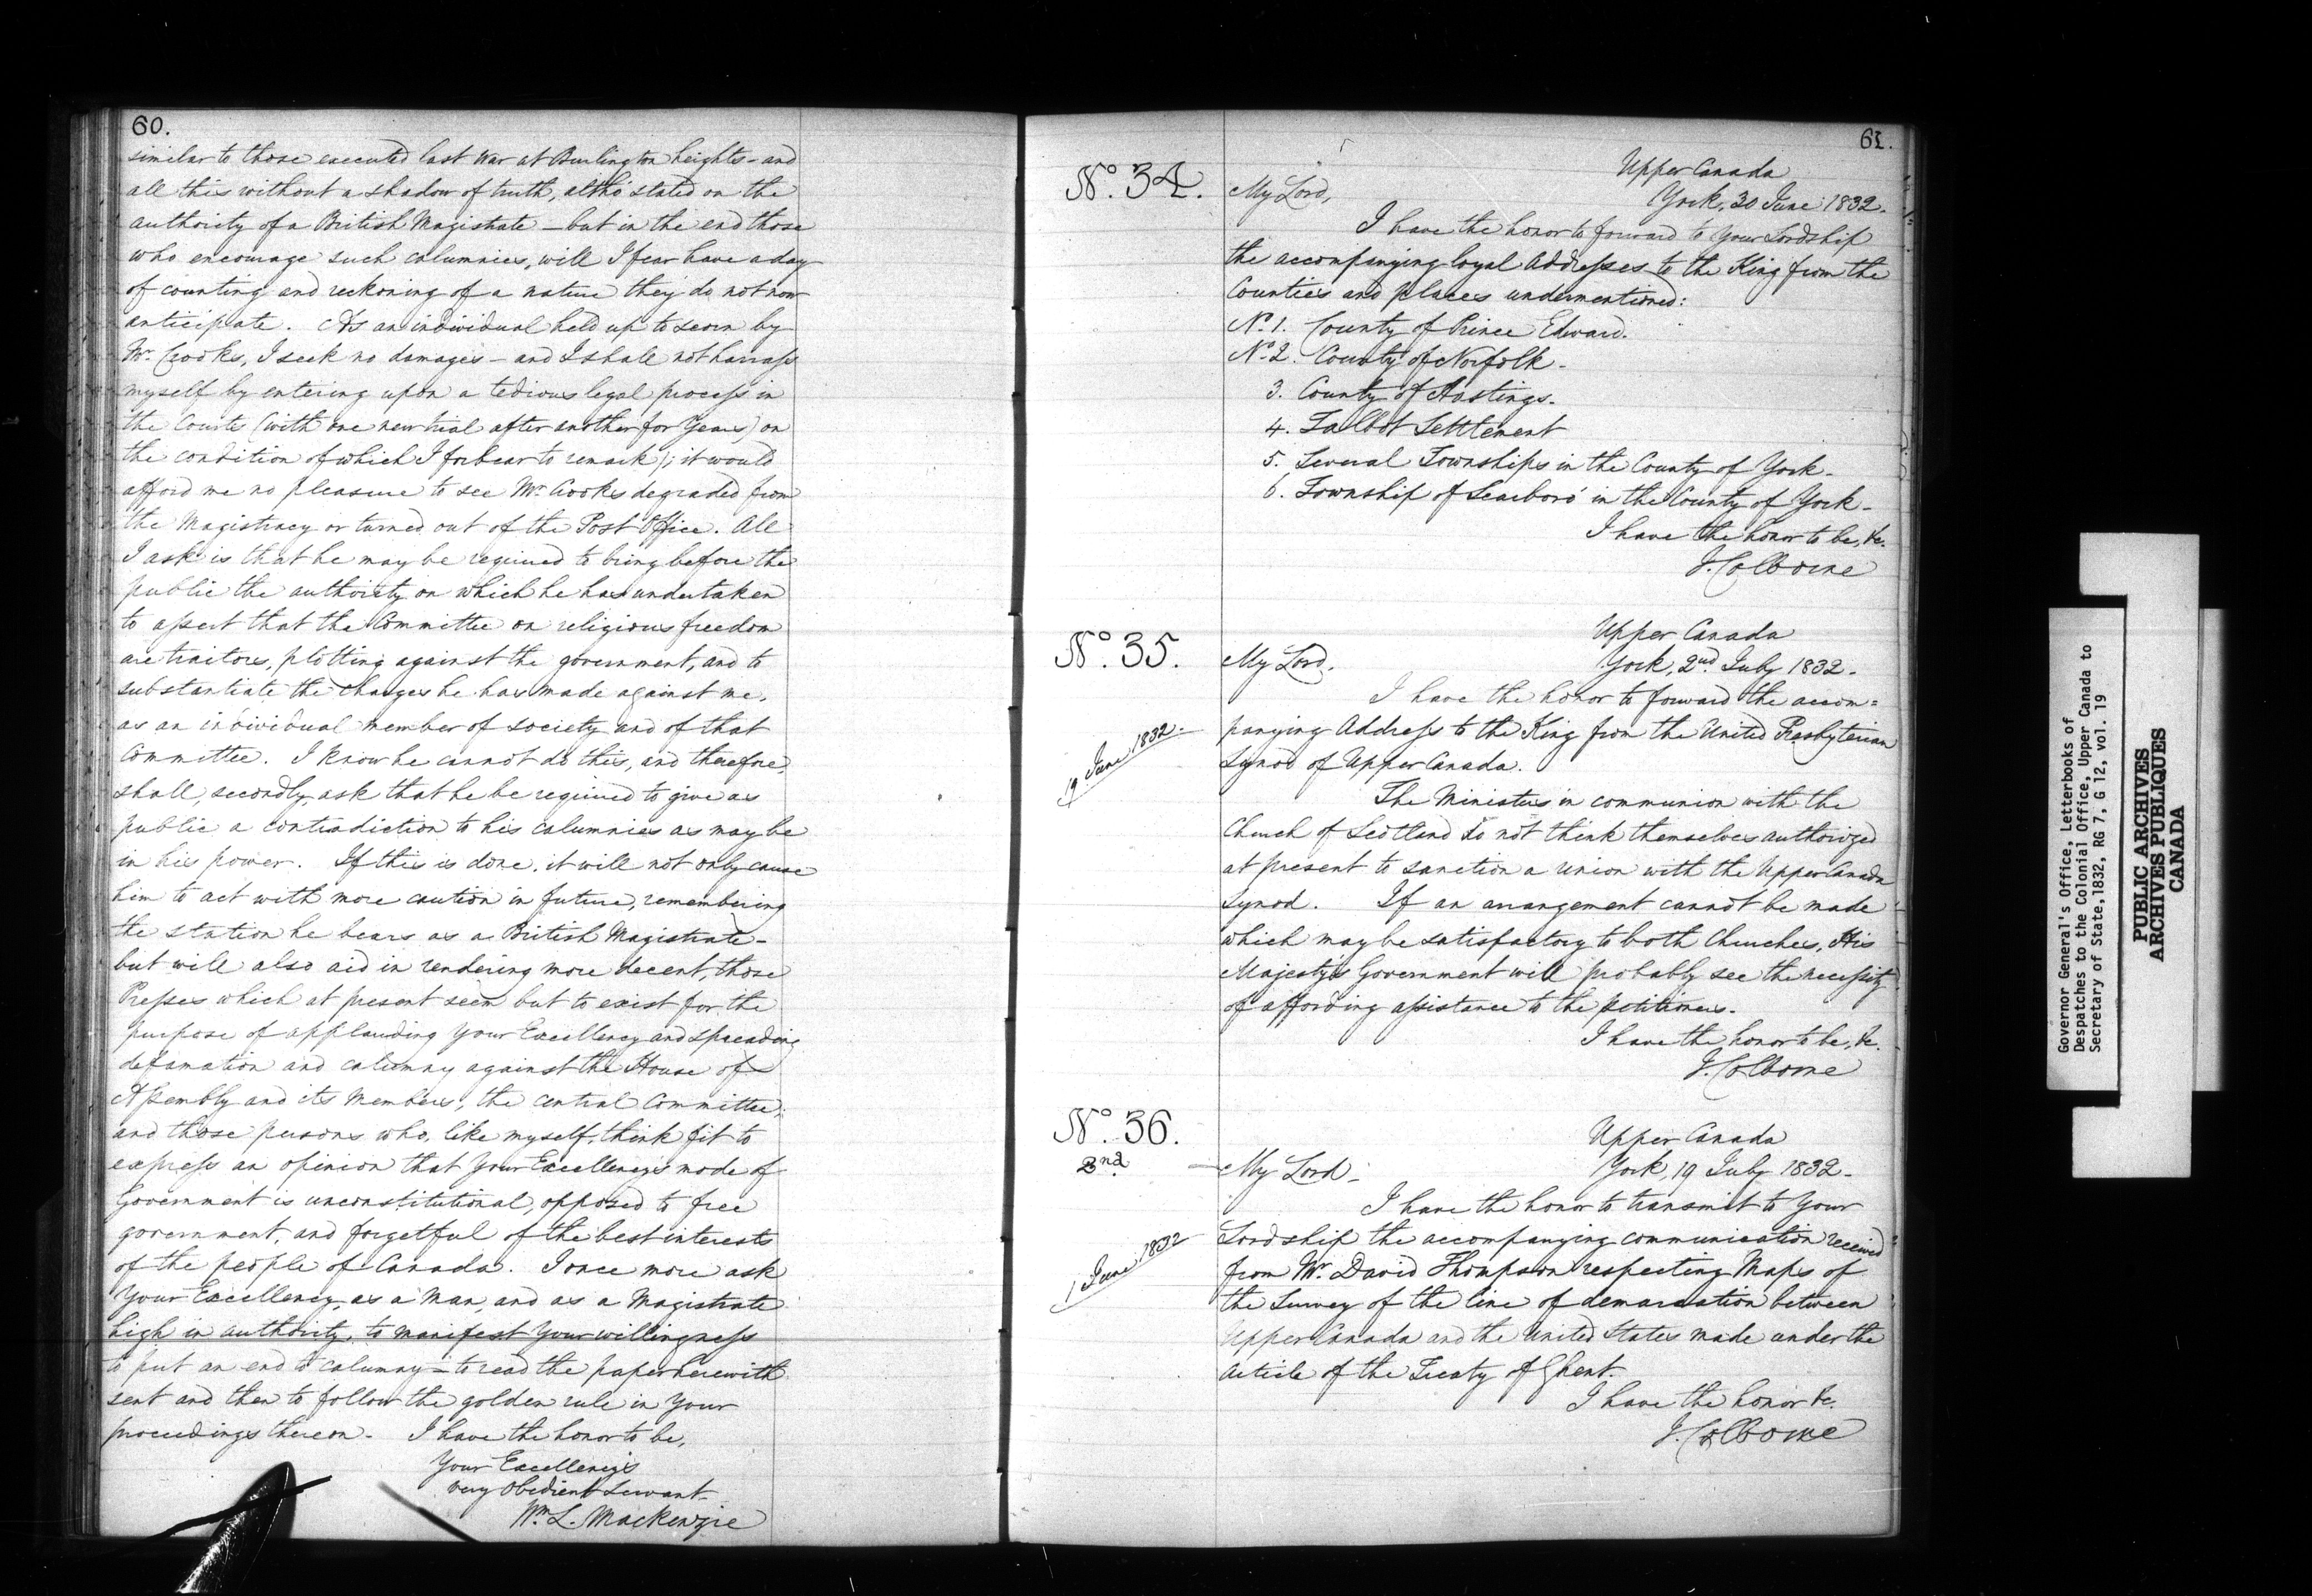 60.
similar to those executed last war at Burlington heights – and
all this without a shadow of truth, altho' stated on the
authority of a British Magistrate – but in the end those
who encourage such calumnies, will I fear have a day
of counting and reckoning of a nature they do not now
anticipate. As an individual held up to scorn by
Mr. Crooks, I seek no damages – and I shall not harrass
myself by entering upon a tedious legal process in
the Courts (with one new trial after another for Years) on
the condition of which I forbear to remark); it would
afford me no pleasure to see Mr. Crooks degraded from
the Magistracy or turned out of the Post Office. All
I ask is that he may be required to bring before the
public the authority on which he has undertaken
to assert that the Committee on religious freedom
are traitors, plotting against the government, and to
substantiate the charges he has made against me,
as an individual member of society and of that
Committee. I know he cannot do this, and therefore,
shall, secondly, ask that he be required to give as
public a contradiction to his calumnies as may be
in his power. If this is done, it will not only cause
him to act with more caution in future, remembering
the station he bears as a British Magistrate –
but will also aid in rendering more decent, those
Presses which at present seem but to exist for the
purpose of applauding Your Excellency and spreading
defamation and calumny against the House of
Assembly and its Members, the central Committee,
and those persons who, like myself, think fit to
express an opinion that Your Excellency's mode of
Government is unconstitutional, opposed to free
government, and forgetful of the best interests
of the people of Canada. I once more ask
Your Excellency, as a Man, and as a Magistrate
high in authority, to manifest Your willingness
to put an end to calumny – to read the paper herewith
sent and then to follow the golden rule in Your
proceedings thereon – I have the honor to be,
Your Excellency's
very Obedient Servant –
Wm. L. Mackenzie
61.
No. 34.
Upper Canada
My Lord, York, 30 June 1832.
I have the honor to forward to Your Lordship
the accompanying loyal Addresses to the King from the
Counties and places undermentioned:
No. 1. County of Prince Edward.
No. 2. County of Norfolk –
3. County of Hastings –
4. Talbot Settlement
5. Several Townships in the County of York –
6. Township of Scarboro' in the County of York –
I have the honor to be, &c.
J. Colborne
No. 35.
Upper Canada
My Lord, York, 2nd July 1832 –
I have the honor to forward the accom=
19 June 1832 –
panying Address to the King from the United Presbyterian
Synod of Upper Canada.
The Ministers in communion with the
Church of Scotland do not think themselves authorized
at present to sanction a union with the Upper Canada
Synod. If an arrangement cannot be made
which may be satisfactory to both Churches, His
Majesty's Government will probably see the necessity
of affording assistance to the petitioners –
I have the honor to be, &c.
J. Colborne
No. 36.
2nd
Upper Canada
My Lord – York, 19 July 1832 –
I have the honor to transmit to Your
1 June 1832
Lordship the accompanying communication received
from Mr. David Thompson respecting Maps of
the Survey of the line of demarcation between
Upper Canada and the United States made under the
Article of the Treaty of Ghent.
I have the honor &c.
J. Colborne
Governor General's Office, Letterbooks of
Despatches to the Colonial Office, Upper Canada to
Secretary of State, 1832, RG 7, G 12, vol. 19
PUBLIC ARCHIVES
ARCHIVES PUBLIQUES
CANADA